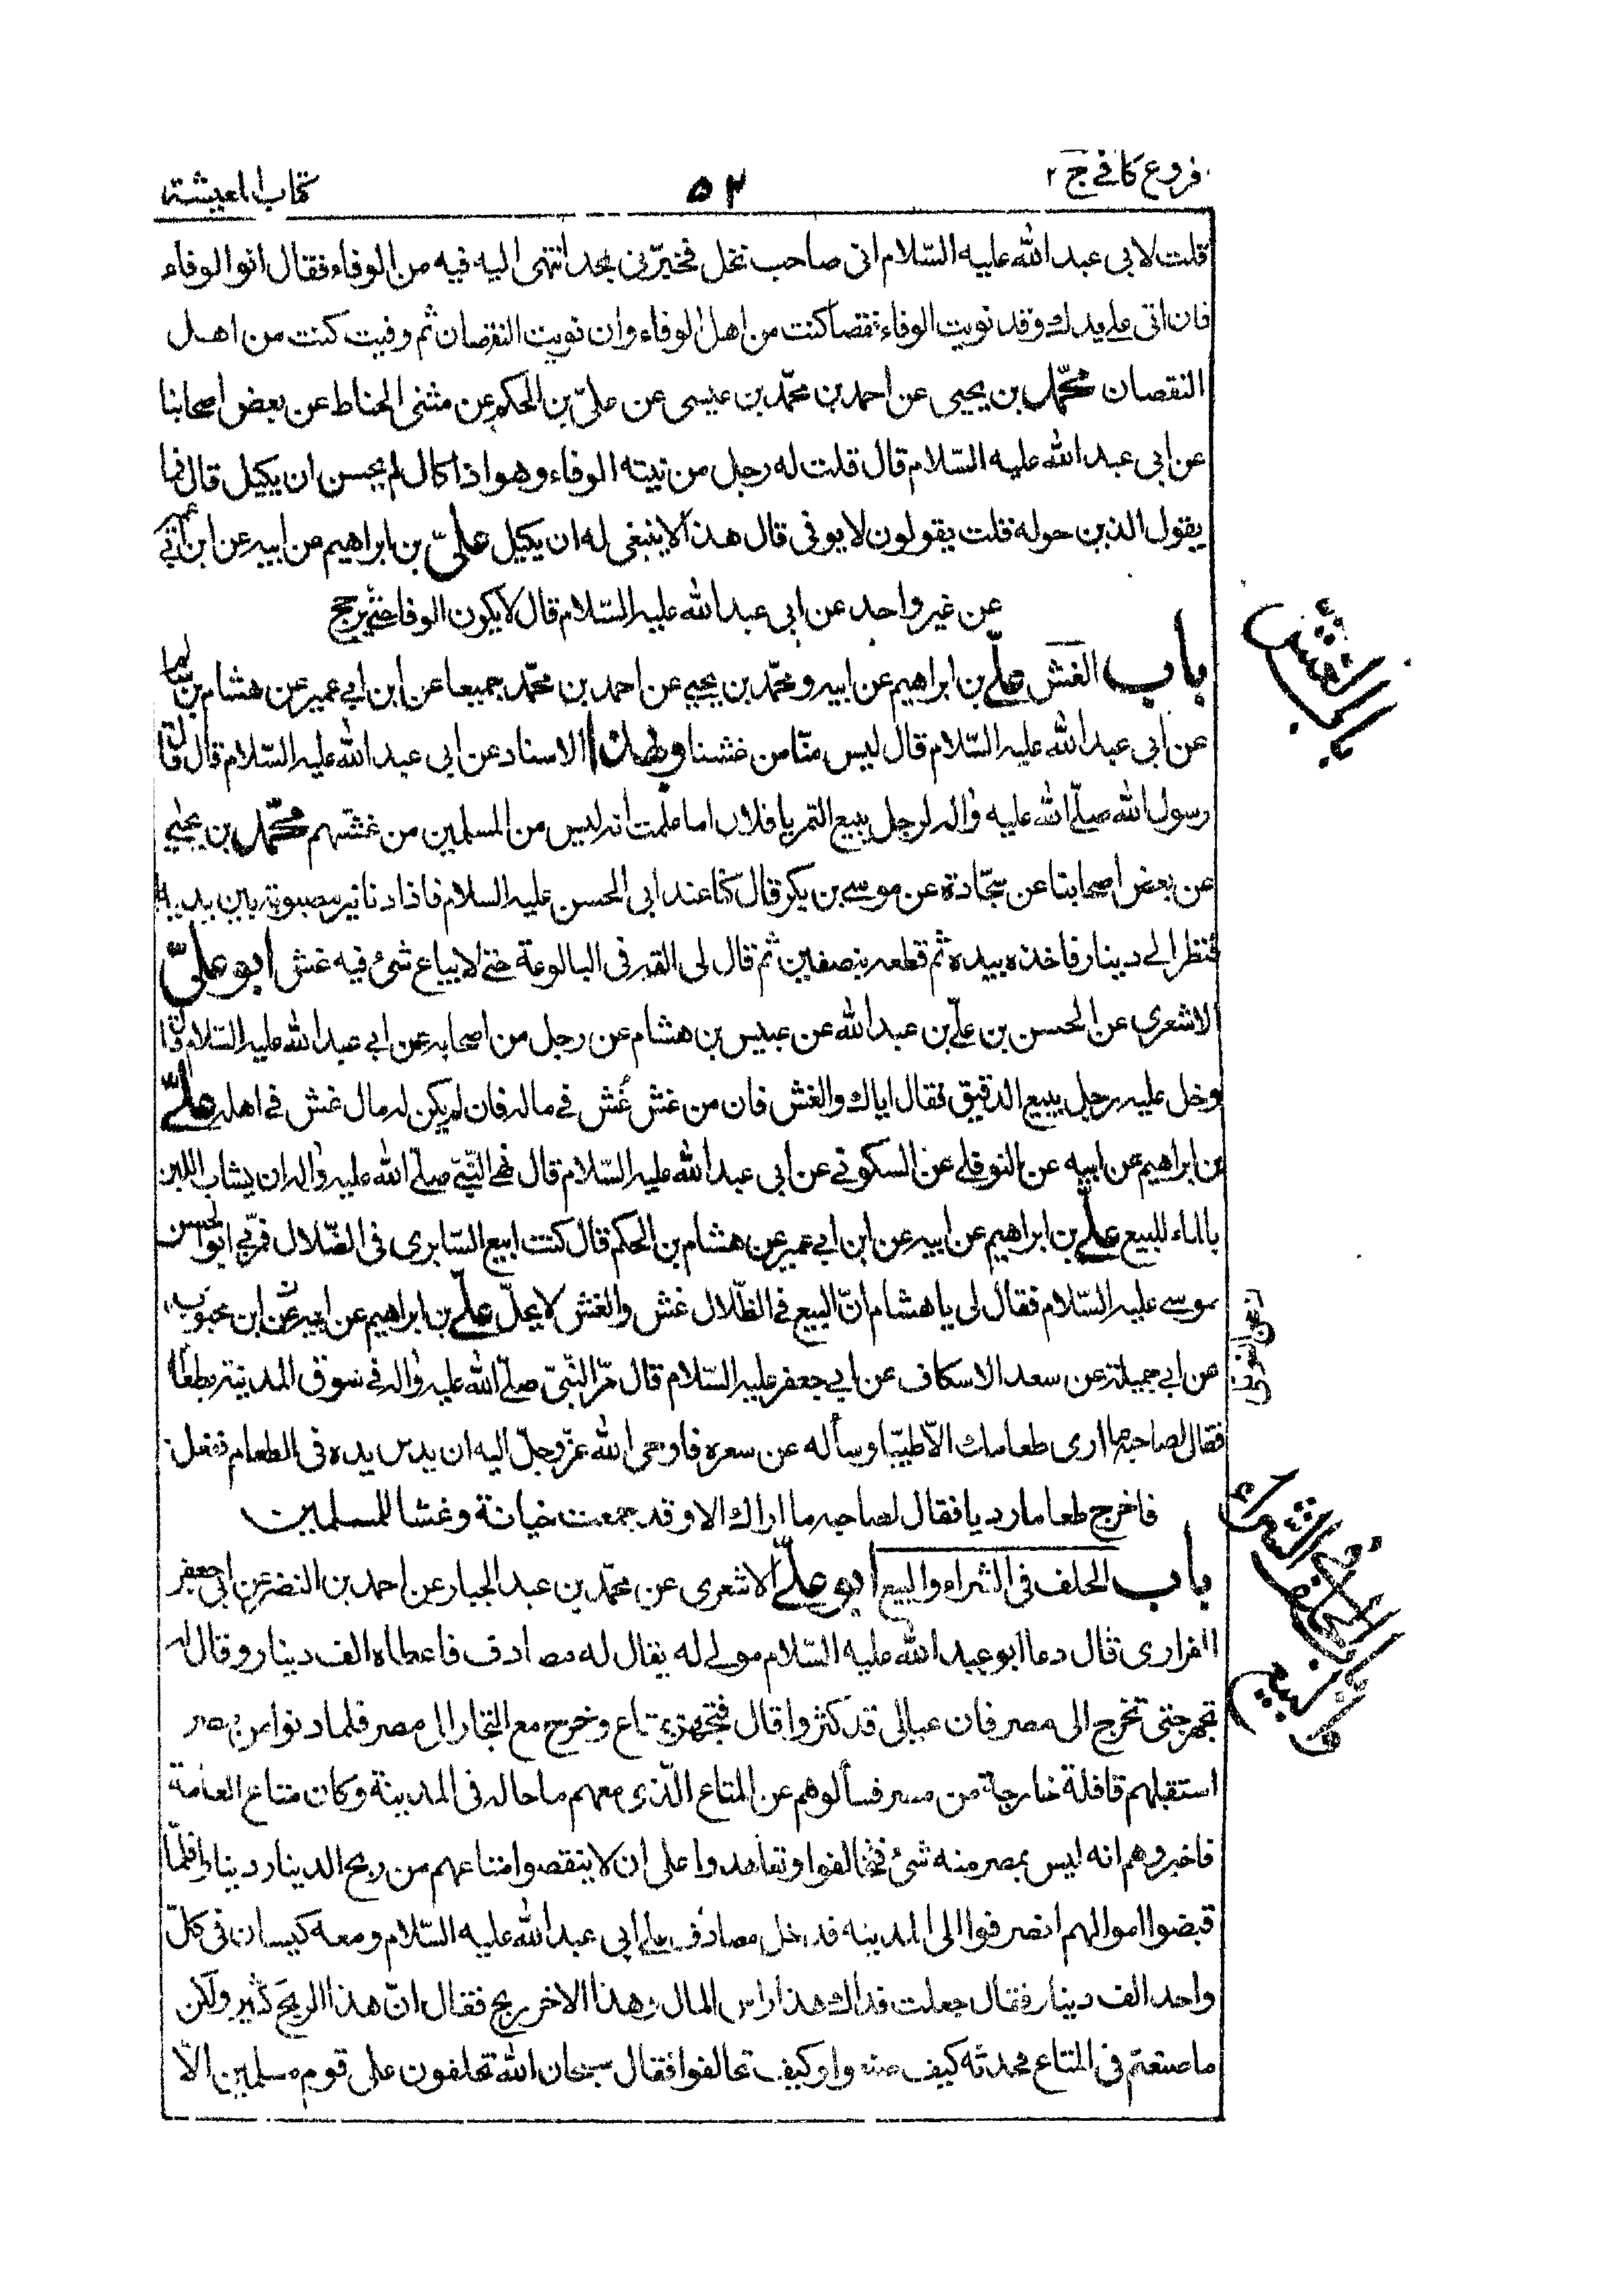 فروع كافي ج ٢
٥٢
كتاب المعيشة
قلت لابى عبد الله عليه السّلام انى صاحب نخل فخبّرنى بحد انتهى اليه فيه من الوفاء فقال انو الوفاء
فان اتى على يدك وقد نويت الوفاء نقصا كنت من اهل الوفاء وان نويت النقصان ثم وفيت كنت من اهل
النقصان محمّد بن يحيى عن احمد بن محمّد بن عيسى عن علىّ بن الحكم عن مثنى الحناط عن بعض اصحابنا
عن ابى عبد الله عليه السّلام قال قلت له رجل من نيته الوفاء وهو اذا كال لم يحسن ان يكيل قال فما
يقول الذين حوله قلت يقولون لا يوفى قال هذا لا ينبغى له ان يكيل علىّ بن ابراهيم عن ابيه عن ابن ابى عمير
عن غير واحد عن ابى عبد الله عليه السّلام قال لا يكون الوفا حتى يرجح
باب الغش علىّ بن ابراهيم عن ابيه ومحمّد بن يحيى عن احمد بن محمّد جميعا عن ابن ابى عمير عن هشام بن سالم
عن ابى عبد الله عليه السّلام قال ليس منّا من غشنا وبهذا الاسناد عن ابى عبد الله عليه السّلام قال قال
رسول الله صلّى الله عليه واله لرجل يبيع التمر يا فلان اما علمت انه ليس من المسلمين من غشهم محمّد بن يحيى
عن بعض اصحابنا عن سجّادة عن موسى بن بكر قال كنا عند ابى الحسن عليه السلام فاذا دنانير مصبوبة بين يديه
فنظر الى دينار فاخذه بيده ثم قطعه بنصفين ثم قال لى القه فى البالوعة حتى لا يباع شئ فيه غش ابو علىّ
الاشعرى عن الحسن بن على بن عبد الله عن عبيس بن هشام عن رجل من اصحابه عن ابى عبد الله عليه السّلام قال
دخل عليه رجل يبيع الدقيق فقال اياك والغش فان من غش غُش فى ماله فان لم يكن له مال غش فى اهله علىّ
بن ابراهيم عن ابيه عن النوفلى عن السكونى عن ابى عبد الله عليه السّلام قال نهى النّبىّ صلّى الله عليه واله ان يشاب اللبن
بالماء للبيع علىّ بن ابراهيم عن ابيه عن ابن ابى عمير عن هشام بن الحكم قال كنت ابيع السّابرى فى الظّلال فمرّ بى ابو الحسن
موسى عليه السّلام فقال لى يا هشام انّ البيع فى الظّلال غش والغش لا يحلّ علىّ بن ابراهيم عن ابيه عن ابن محبوب
عن ابى جميلة عن سعد الاسكاف عن ابى جعفر عليه السّلام قال مرّ النّبىّ صلّى الله عليه واله فى سوق المدينة بطعام
فقال لصاحبه ما ارى طعامك الّا طيّبا وسأله عن سعره فاوحى الله عزّ وجلّ اليه ان يدس يده فى الطعام ففعل
فاخرج طعاما رديا فقال لصاحبه ما اراك الا وقد جمعت خيانة وغشا للمسلمين
باب الحلف فى الشراء والبيع ابو علىّ الاشعرى عن محمّد بن عبد الجبار عن احمد بن النضر عن ابى جعفر
الفزارى قال دعا ابو عبد الله عليه السّلام مولى له يقال له مصادف فاعطاه الف دينار وقال له
تجهز حتى تخرج الى مصر فان عيالى قد كثروا قال فتجهز بمتاع وخرج مع التجار الى مصر فلما دنوا من مصر
استقبلهم قافلة خارجة من مصر فسألوهم عن المتاع الّذى معهم ما حاله فى المدينة وكان متاع العامة
فاخبروهم انه ليس بمصر منه شئ فتحالفوا وتعاهدوا على ان لا ينقصوا متاعهم من ربح الدينار دينارا فلمّا
قبضوا اموالهم انصرفوا الى المدينه فدخل مصادف على ابى عبد الله عليه السّلام ومعه كيسان فى كلّ
واحد الف دينار فقال جعلت فداك هذا راس المال وهذا الاخر ربح فقال انّ هذا الربح كثير ولكن
ما صنعتم فى المتاع فحدثه كيف صنعوا وكيف تحالفوا فقال سبحان الله تحلفون على قوم مسلمين الّا
باب الغش
باب الحلف فى الشراء
والبيع